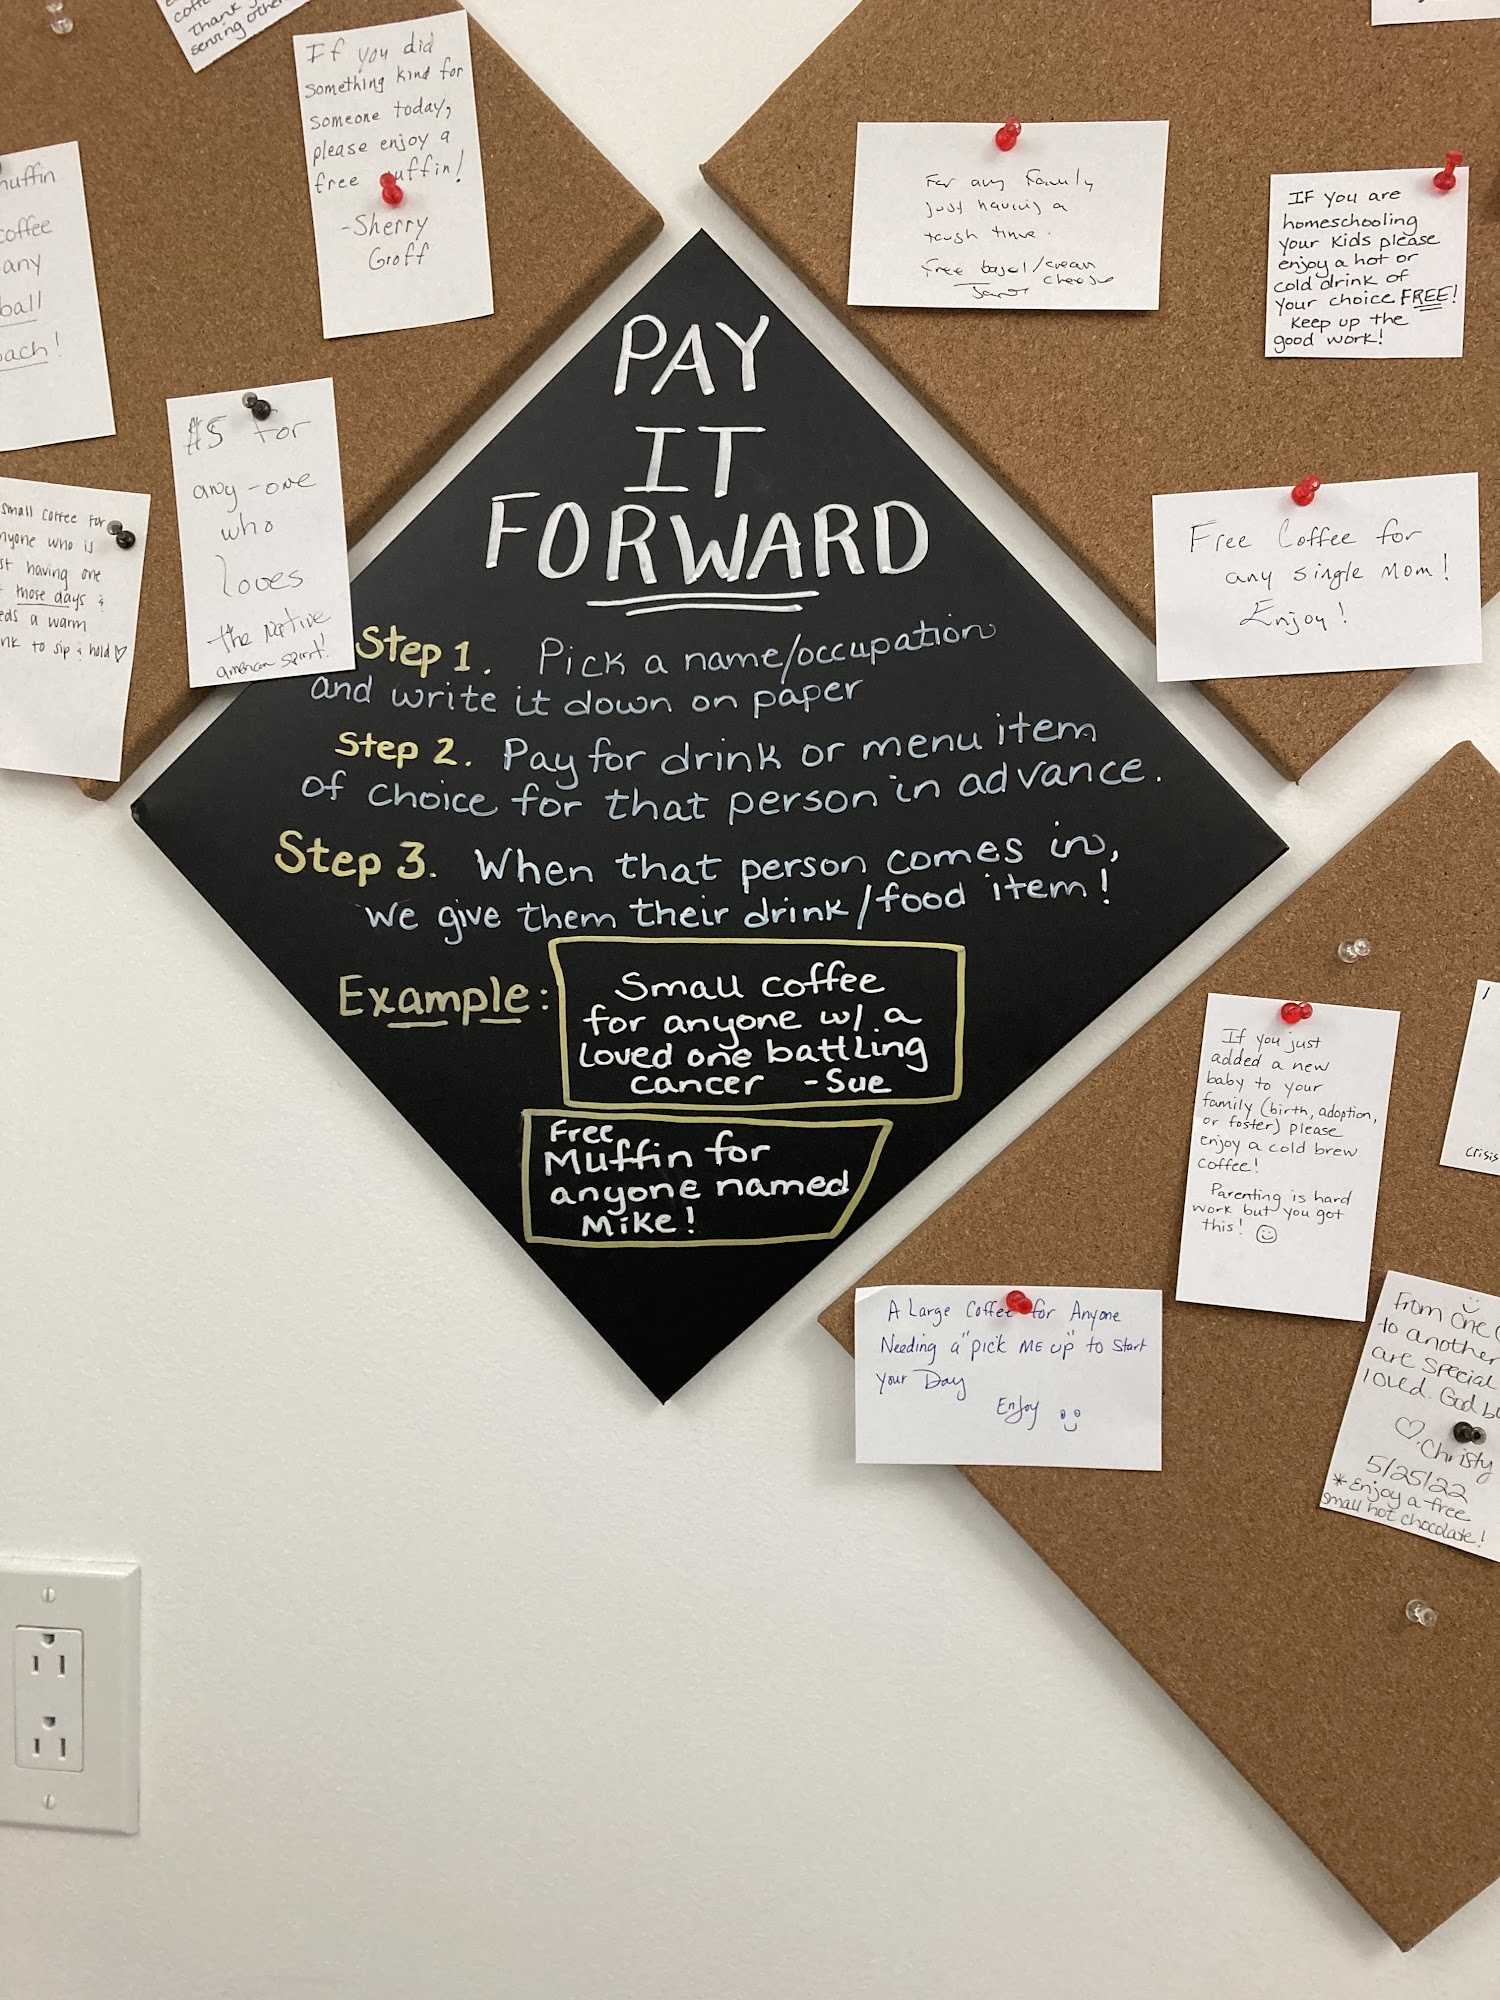 Thank
serving othe
If you did
something kind for
someone today,
please enjoy a
free muffin!
-Sherry
Groff
muffin
coffee
any
ball
oach!
$5 for
any-one
who
loves
the Native
american spirit!
small coffee for
nyone who is
st having one
those days &
eds a warm
nk to sip & hold ♡
For any Family
just having a
tough time.
Free bagel/cream
cheese
IF you are
homeschooling
your kids please
enjoy a hot or
cold drink of
your choice FREE!
Keep up the
good work!
Free Coffee for
any single mom!
Enjoy!
PAY
IT
FORWARD
Step 1. Pick a name/occupation
and write it down on paper
Step 2. Pay for drink or menu item
of choice for that person in advance.
Step 3. When that person comes in,
we give them their drink/food item!
Example:
Small coffee
for anyone w/ a
loved one battling
cancer -Sue
Free
Muffin for
anyone named
Mike!
If you just
added a new
baby to your
family (birth, adoption,
or foster) please
enjoy a cold brew
coffee!
Parenting is hard
work but you got
this! ☺
crisis
A Large Coffee for Anyone
Needing a "pick ME up" to Start
your Day
Enjoy
From one
to another
are special
loved. God bl
♡ Christy
5/25/22
*Enjoy a free
small hot chocolate!